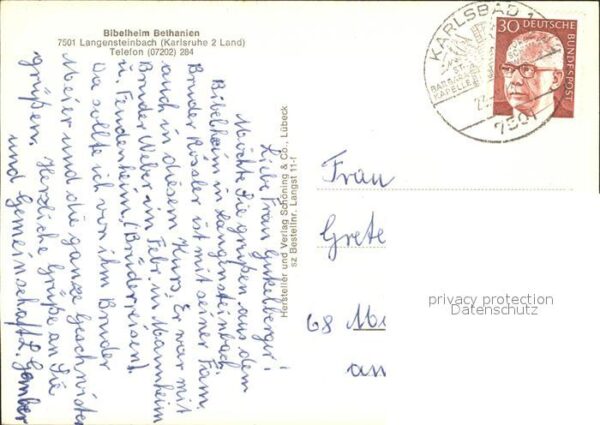 Bibelheim Bethanien
7501 Langensteinbach (Karlsruhe 2 Land)
Telefon (07202) 284
Liebe Frau Gukelberger!
Möchte Sie grüßen aus dem
Bibelheim in Langensteinbach.
Bruder Rössler ist mit seiner Fam.
auch in diesem Kurs. Er war mit
Bruder Weber im Febr. in Mannheim
u. Feudenheim. (Brüderreisen).
Da sollte ich von ihm Bruder
Meier und die ganze Geschwister
grüßen. Herzliche Grüße an Sie
und Gemeinschaft L. Gember
Hersteller und Verlag Schöning & Co., Lübeck
sz Bestellnr. Langst 11-f
KARLSBAD 1
ST.
BARBARA
KAPELLE
7501
30 DEUTSCHE
BUNDESPOST
Frau
Grete
68 M
an
privacy protection
Datenschutz